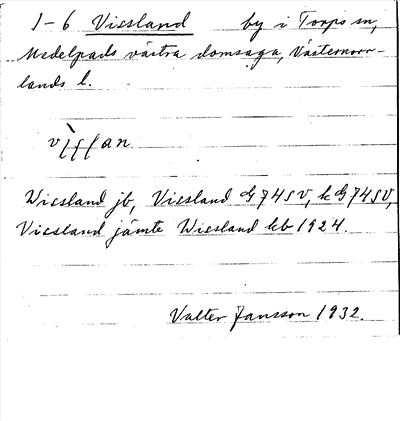 1-6 Viesland by i Torps sn,
Medelpads västra domsaga, Västernorr-
lands l.
Wiesland jb, Viesland G74SV, k G74SV,
Viesland jämte Wiesland kb 1924.
Valter Jansson 1932.